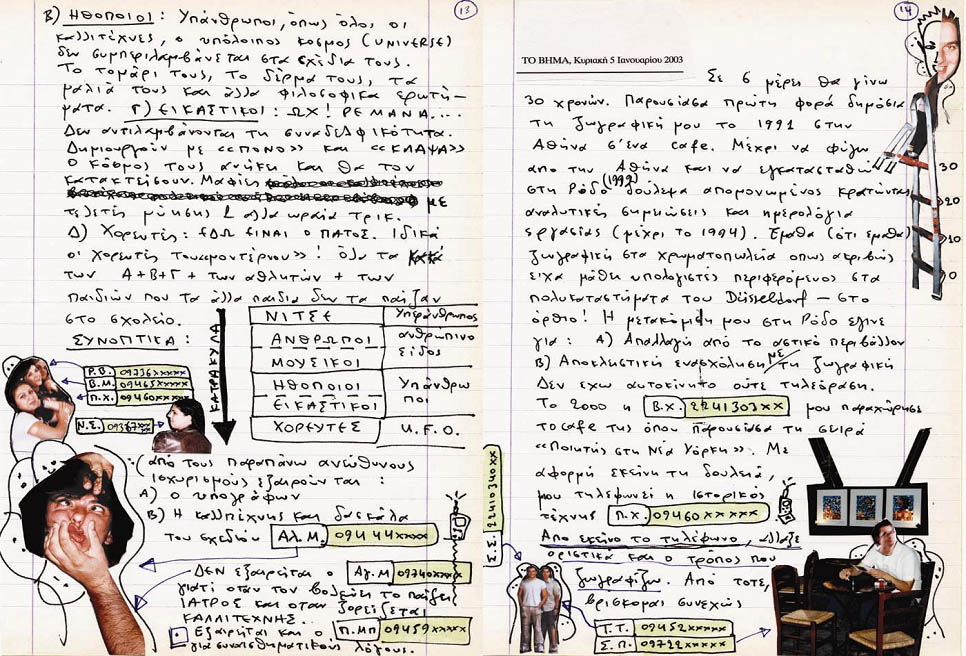 13
Β) ΗΘΟΠΟΙΟΙ: Υπάνθρωποι, όπως όλοι οι
καλλιτέχνες, ο υπόλοιπος κόσμος (UNIVERSE)
δεν συμπεριλαμβάνεται στα σχέδιά τους.
Το τομάρι τους, το δέρμα τους, τα
μαλιά τους και άλλα φιλοσοφικά ερωτή-
ματα. Γ) ΕΙΚΑΣΤΙΚΟΙ: ΩΧ! ΡΕ ΜΑΝΑ...
Δεν αντιλαμβάνονται τη συναδεΔφικότητα.
Δημιουργούν με «ΠΟΝΟ» και «ΚΛΑΨΑ»
Ο κόσμος τους ανήκει και θα τον
κατακτείσουν. Μαφίες με
τελετές μύησης & άλλα ωραία τρικ.
Δ) Χορευτές: ΕΔΩ ΕΙΝΑΙ Ο ΠΑΤΟΣ. Ιδικά
οι χορευτές του «μοντέρνου»! Όλα τα κακά
των Α+Β+Γ + των αθλητών + των
παιδιών που τα άλλα παιδιά δεν τα παίζαν
στο σχολείο.
ΣΥΝΟΠΤΙΚΑ:
ΚΑΤΡΑΚΥΛΑ
ΝΙΤΣΕ Υπεράνθρωπος
ΑΝΘΡΩΠΟΙ ανθρώπινο
ΜΟΥΣΙΚΟΙ είδος
ΗΘΟΠΟΙΟΙ Υπάνθρω
ΕΙΚΑΣΤΙΚΟΙ ποι
ΧΟΡΕΥΤΕΣ U.F.O.
Ρ.Β. 09736xxxxx
Β.Μ. 09465xxxxx
Π.Χ. 09460xxxxx
Ν.Σ. 09367xxx
από τους παραπάνω ανεύθυνους
ισχυρισμούς εξαιρούνται:
Α) ο υπογράφων
Β) Η καλλιτέχνης και δασκάλα
του σχεδίου Αλ.Μ. 09444xxxx
ΔΕΝ εξαιρείται ο Αγ.Μ 09740xxxx
γιατί όταν τον βολεύει το παίζει
ΙΑΤΡΟΣ και όταν ζορείζεται
ΚΑΛΛΙΤΕΧΝΗΣ..
Εξαιρείται και ο Π.ΜΠ 09459xxxxx
για συναισθηματικούς λόγους.
14
ΤΟ ΒΗΜΑ, Κυριακή 5 Ιανουαρίου 2003
Σε 6 μέρει θα γίνω
30 χρονών. Παρουσίασα πρώτη φορά δημόσια
τη ζωγραφική μου το 1991 στην
Αθήνα σ'ένα cafe. Μέχρι να φύγω
από την Αθήνα και να εγκατασταθώ
στη Ρόδο (1992) δούλεμα απομονωμένος κρατώντας
αναλυτικές σημειώσεις και ημερολόγια
εργασίας (μέχρι το 1994). Έμαθα (ότι έμαθα)
ζωγραφική στα χρωματοπωλεία όπως ακριβώς
είχα μάθει υπολογιστές περιφερόμενος στα
πολυκαταστήματα του Düsseldorf – στο
όρθιο! Η μετακόμιση μου στη Ρόδο έγινε
για: Α) Απαλλαγή από το αστικό περιβάλλον
Β) Αποκλειστική ενασχόληση ΜΕ τη ζωγραφική
Δεν έχω αυτοκίνητο ούτε τηλεόραση.
Το 2000 η Β.Χ. 2241303xx μου παραχώρησε
το cafe της όπου παρουσίασα τη σειρά
«Ποιητής στη Νέα Υόρκη». Με
αφορμή εκείνη τη δουλειά,
μου τηλεφωνεί η ιστορικός
τέχνης Π.Χ. 09460xxxxx
Από εκείνο το τηλέφωνο, άλλαξε
οριστικά και ο τρόπος που
ζωγραφίζω. Από τότε,
βρίσκομαι συνεχώς
Σ.Σ. 2241034 0xx
Τ.Τ. 09452xxxxx
Σ.Π. 09722xxxxx
30
20
10
0